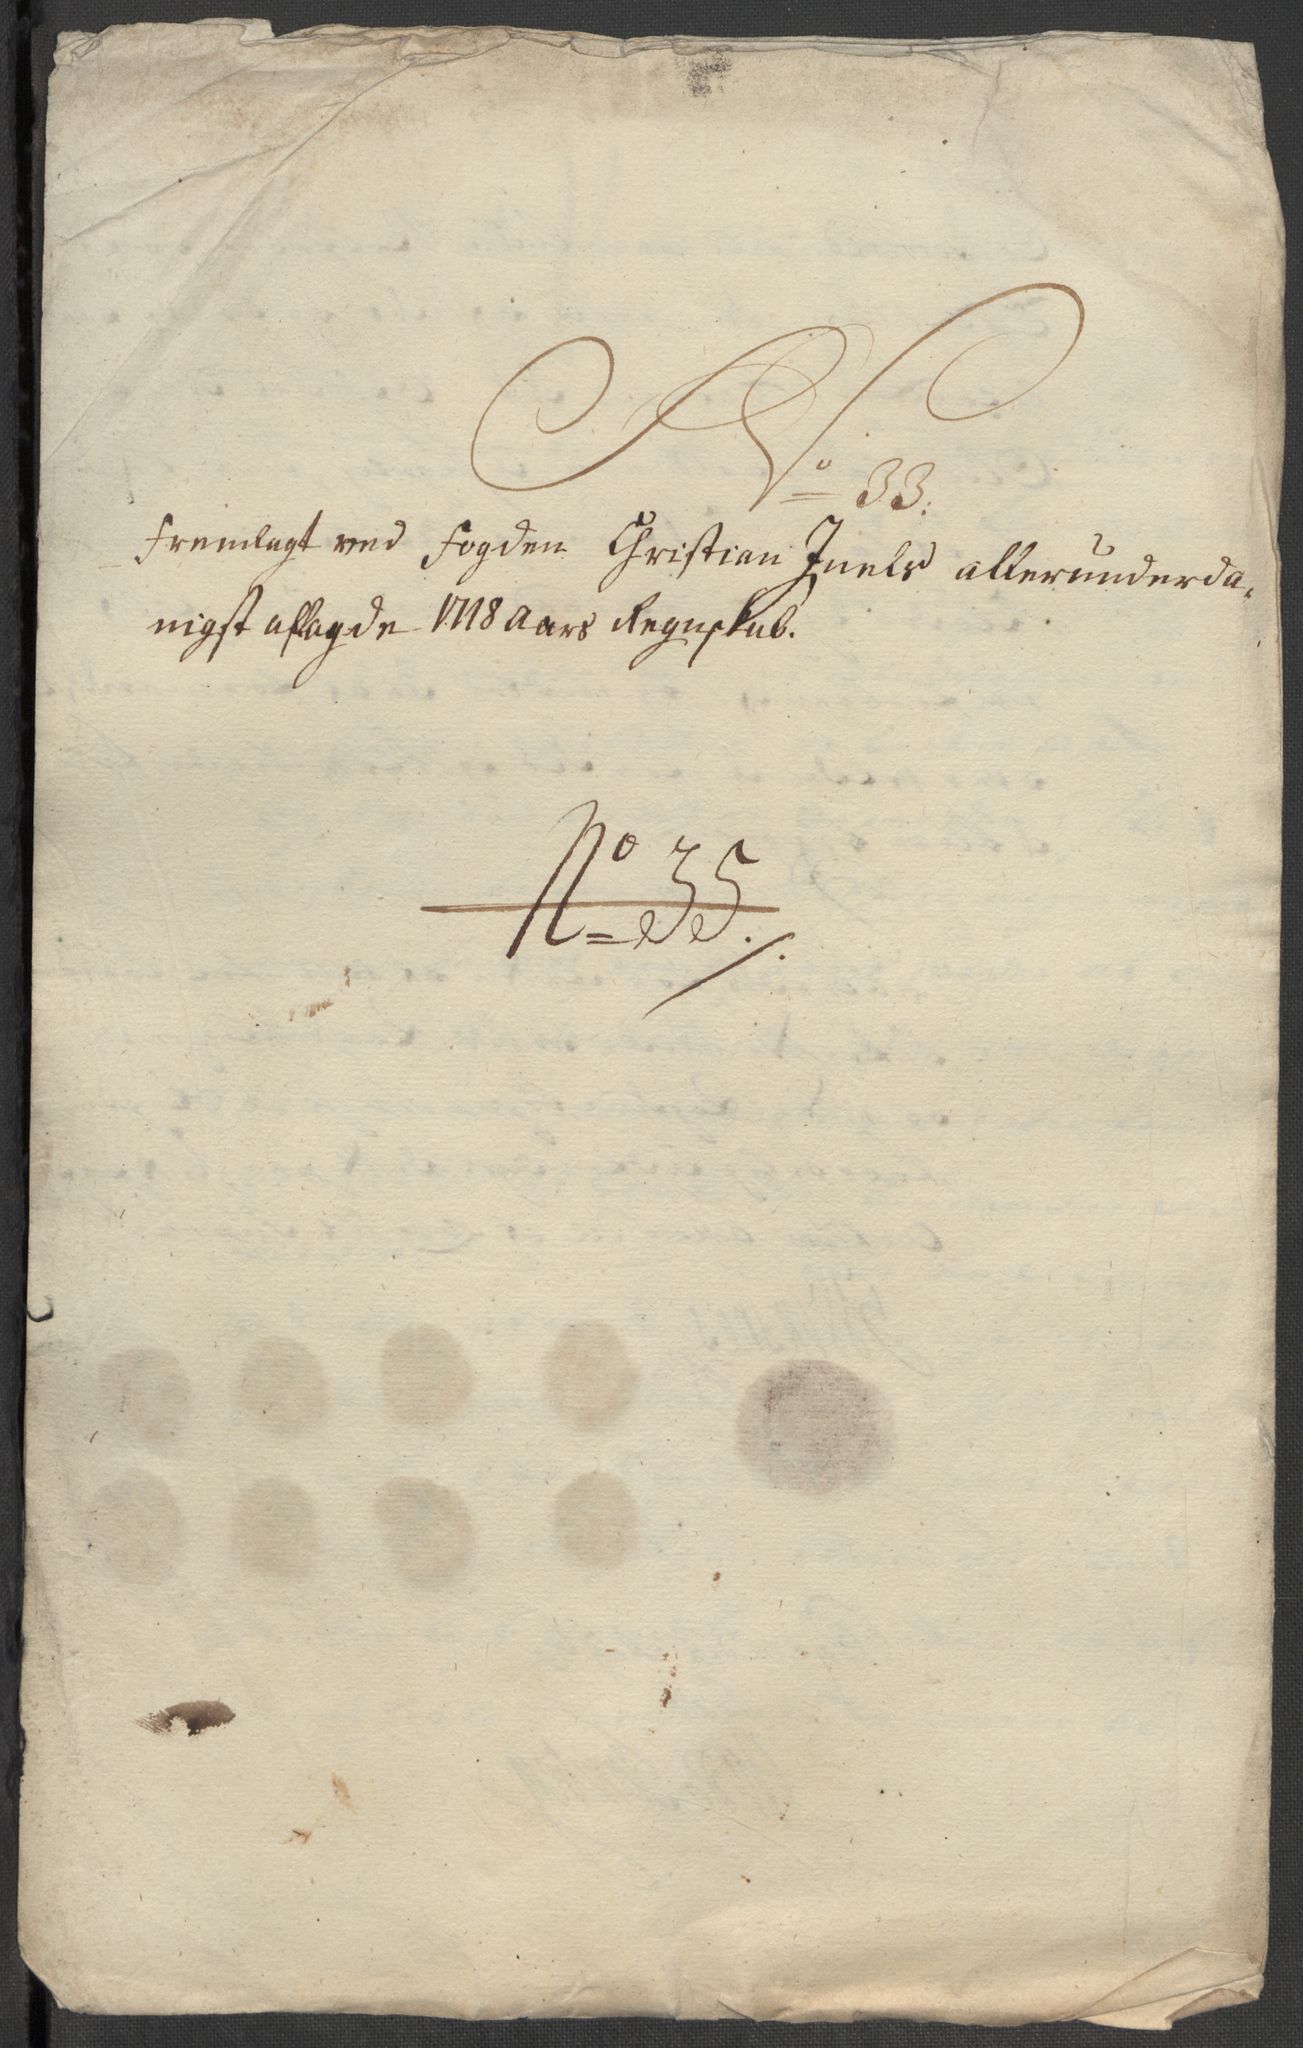 No 33.
Fremlagt ved Fogden Christian Jnels allerunderda-
nigst aflagde 1718 Aars Regnskab.
No 35.